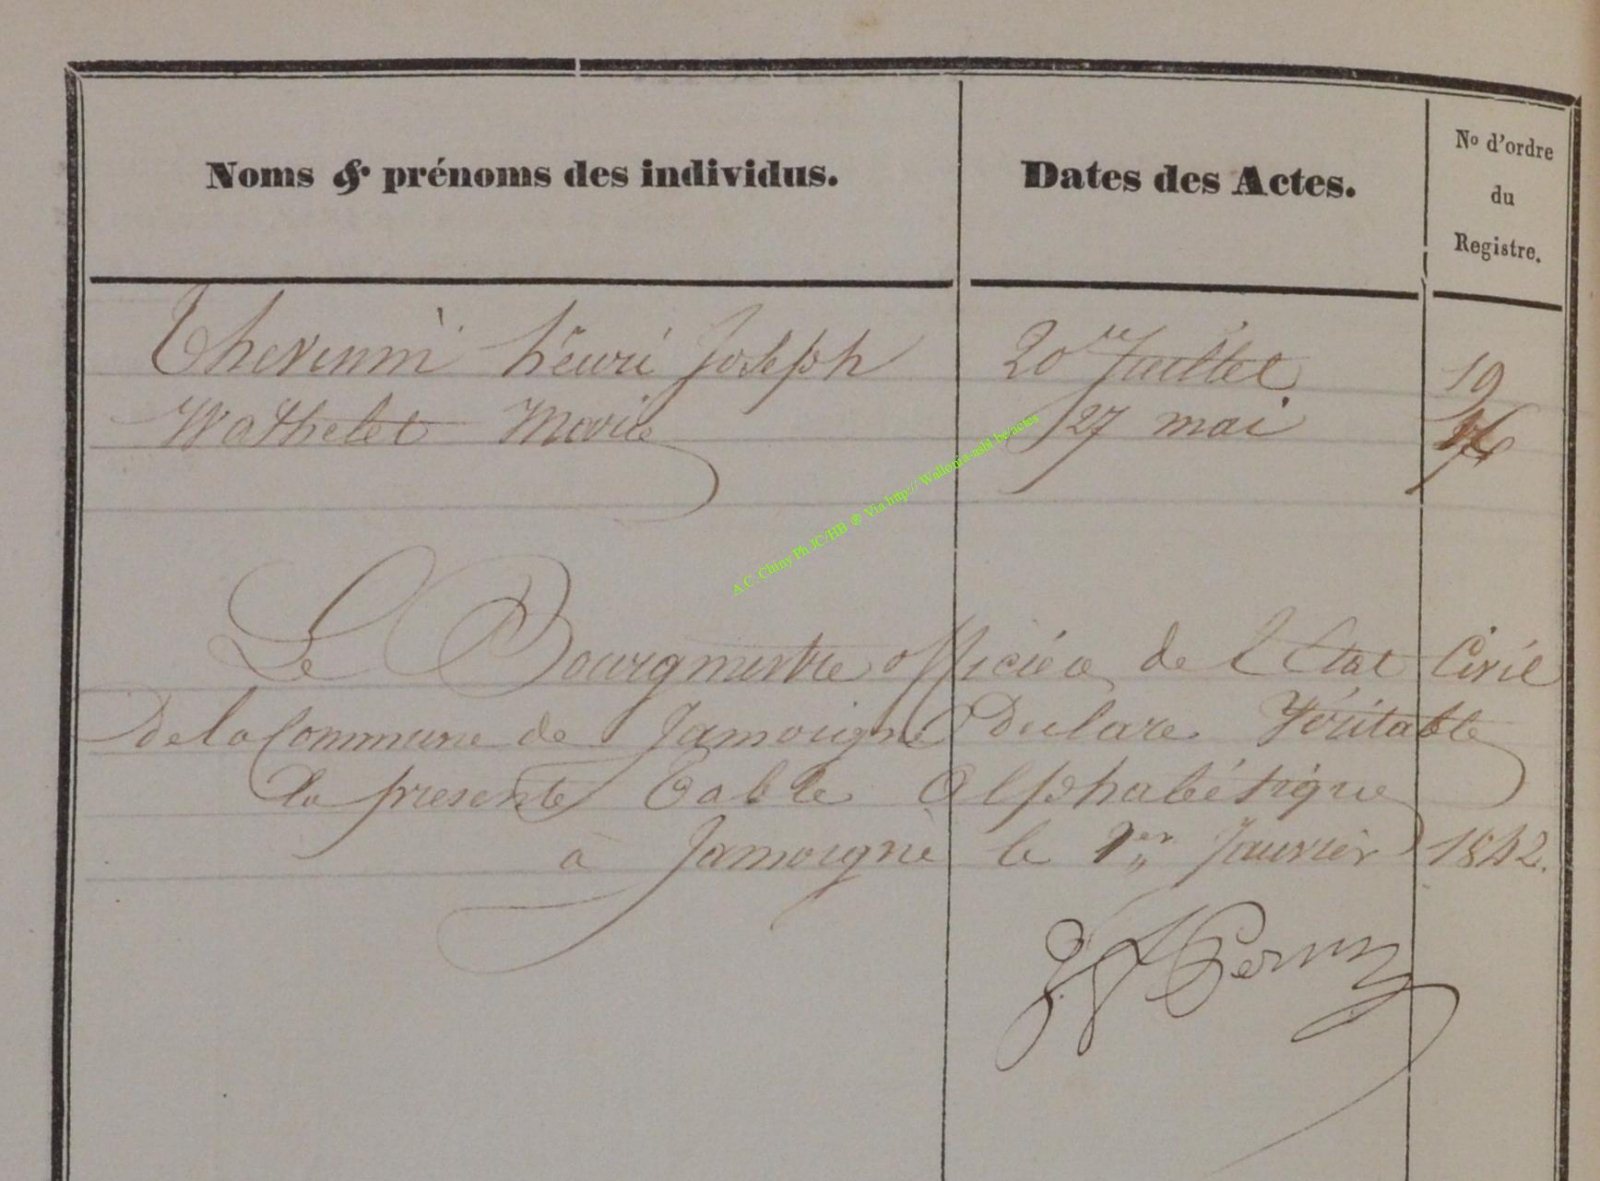 Noms & prénoms des individus.
Dates des Actes.
No d'ordre
du
Registre.
henri Joseph
20 Juillet
19
Wathelet Marie
27 mai
A.C. Chiny Ph JC/HB ® Via http// Wallonia-asbl be/actes
Le Bourgmestre officier de l Etat Civil
De la Commune de Jamoigne Declare Véritable
la presente Table Alphabétique
à Jamoigne le 1er Janvier 1842.